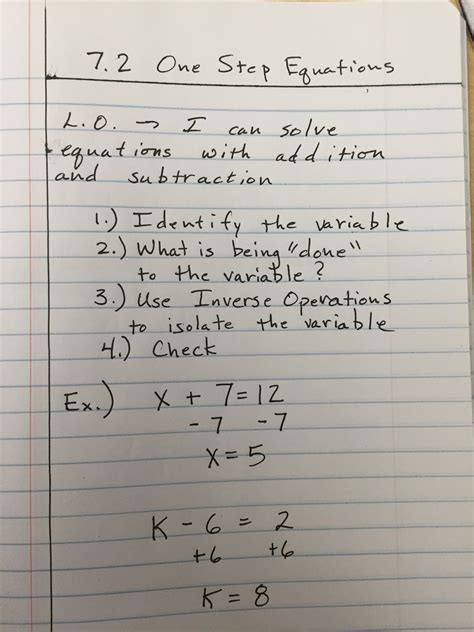 7.2 One Step Equations
L.O. → I can solve
equations with addition
and subtraction
1.) Identify the variable
2.) What is being "done"
to the variable?
3.) Use Inverse Operations
to isolate the variable
4.) Check
Ex.) x + 7 = 12
- 7 - 7
x = 5
K - 6 = 2
+6 +6
K = 8